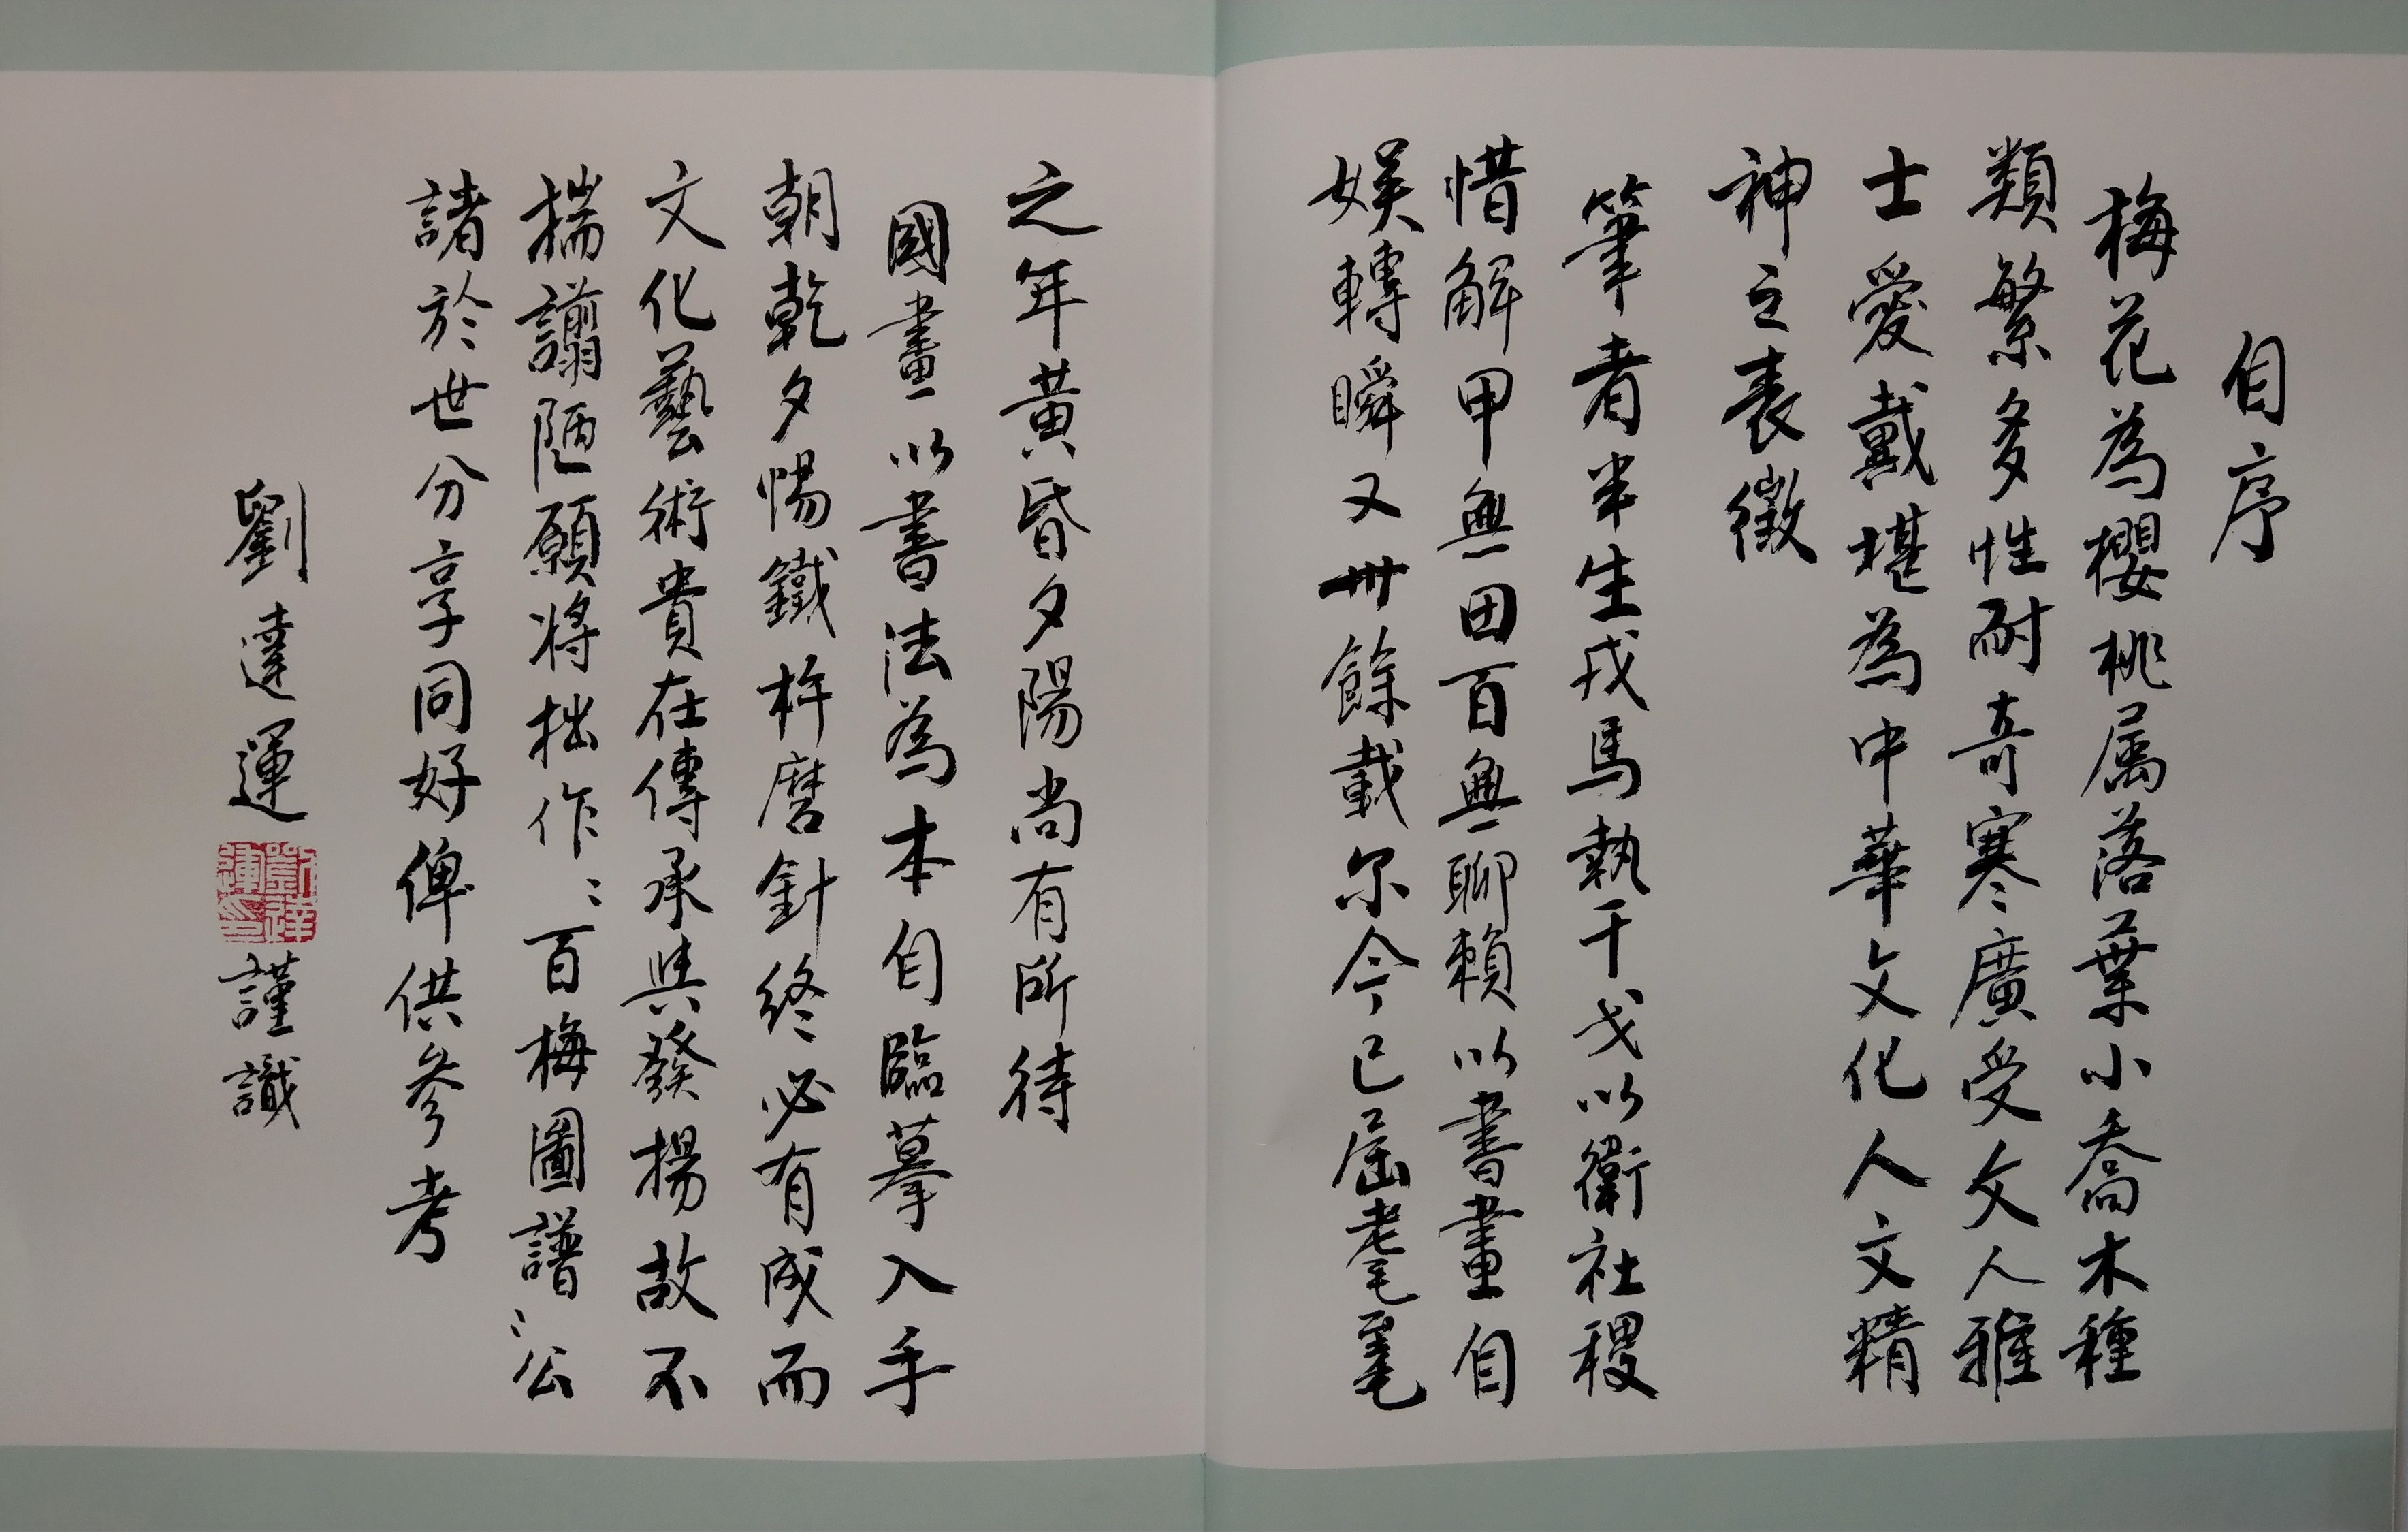 自序
梅花為櫻桃属落葉小喬木種
類繁多性耐竒寒廣受文人雅
士愛戴堪為中華文化人文精
神之表徵
筆者半生戎馬執干戈以衛社稷
惜解甲無田百無聊賴以書畫自
娱轉瞬又卅餘載尔今已屆耄耋
之年黄昏夕陽尚有所待
國畫以書法為本自臨摹入手
朝乾夕惕鐵杵磨針終必有成而
文化藝術貴在傳承與發揚故不
揣謭陋願將拙作：百梅圖譜：公
諸於世分享同好俾供參考
劉達運
劉達運印
謹識